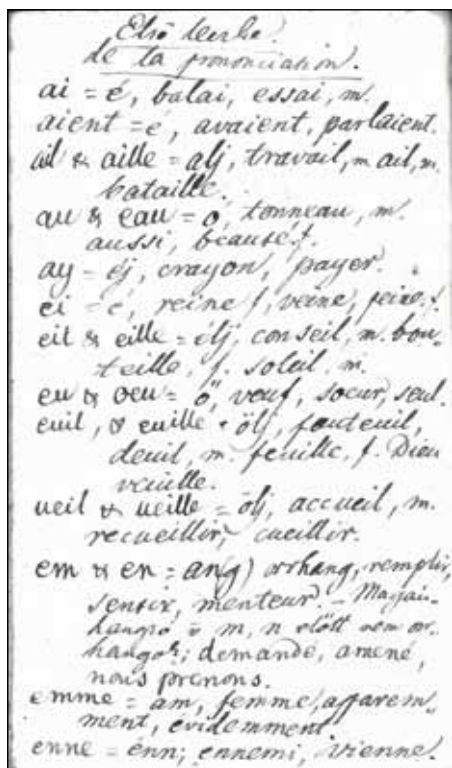 Első leczke.
de la prononciation.
ai = é, balai, essai, m.
aient = é, avaient, parlaient.
ail & aille = alj, travail, m ail, m.
bataille.
au & eau = o, tonneau, m.
aussi, beauté f.
ay = éj, crayon, payer.
ei = é, reine f, veine, peine, f.
eil & eille = élj, conseil, m. bou-
teille, f. soleil, m.
eu & oeu = ö, veuf, soeur, seul.
euil, & euille = ölj, fauteuil,
deuil, m. feuille, f. Dieu
veuille.
ueil & ueille = ölj, accueil, m.
recueillir, cueillir.
em & en = an(g) orrhang, remplir,
sentir, menteur. –
hangzó m, n előtt nem or-
hangok; demande, amené,
nous prenons.
emme = am, femme, apparem-
ment, évidemment
enne = énn; ennemi, vienne.